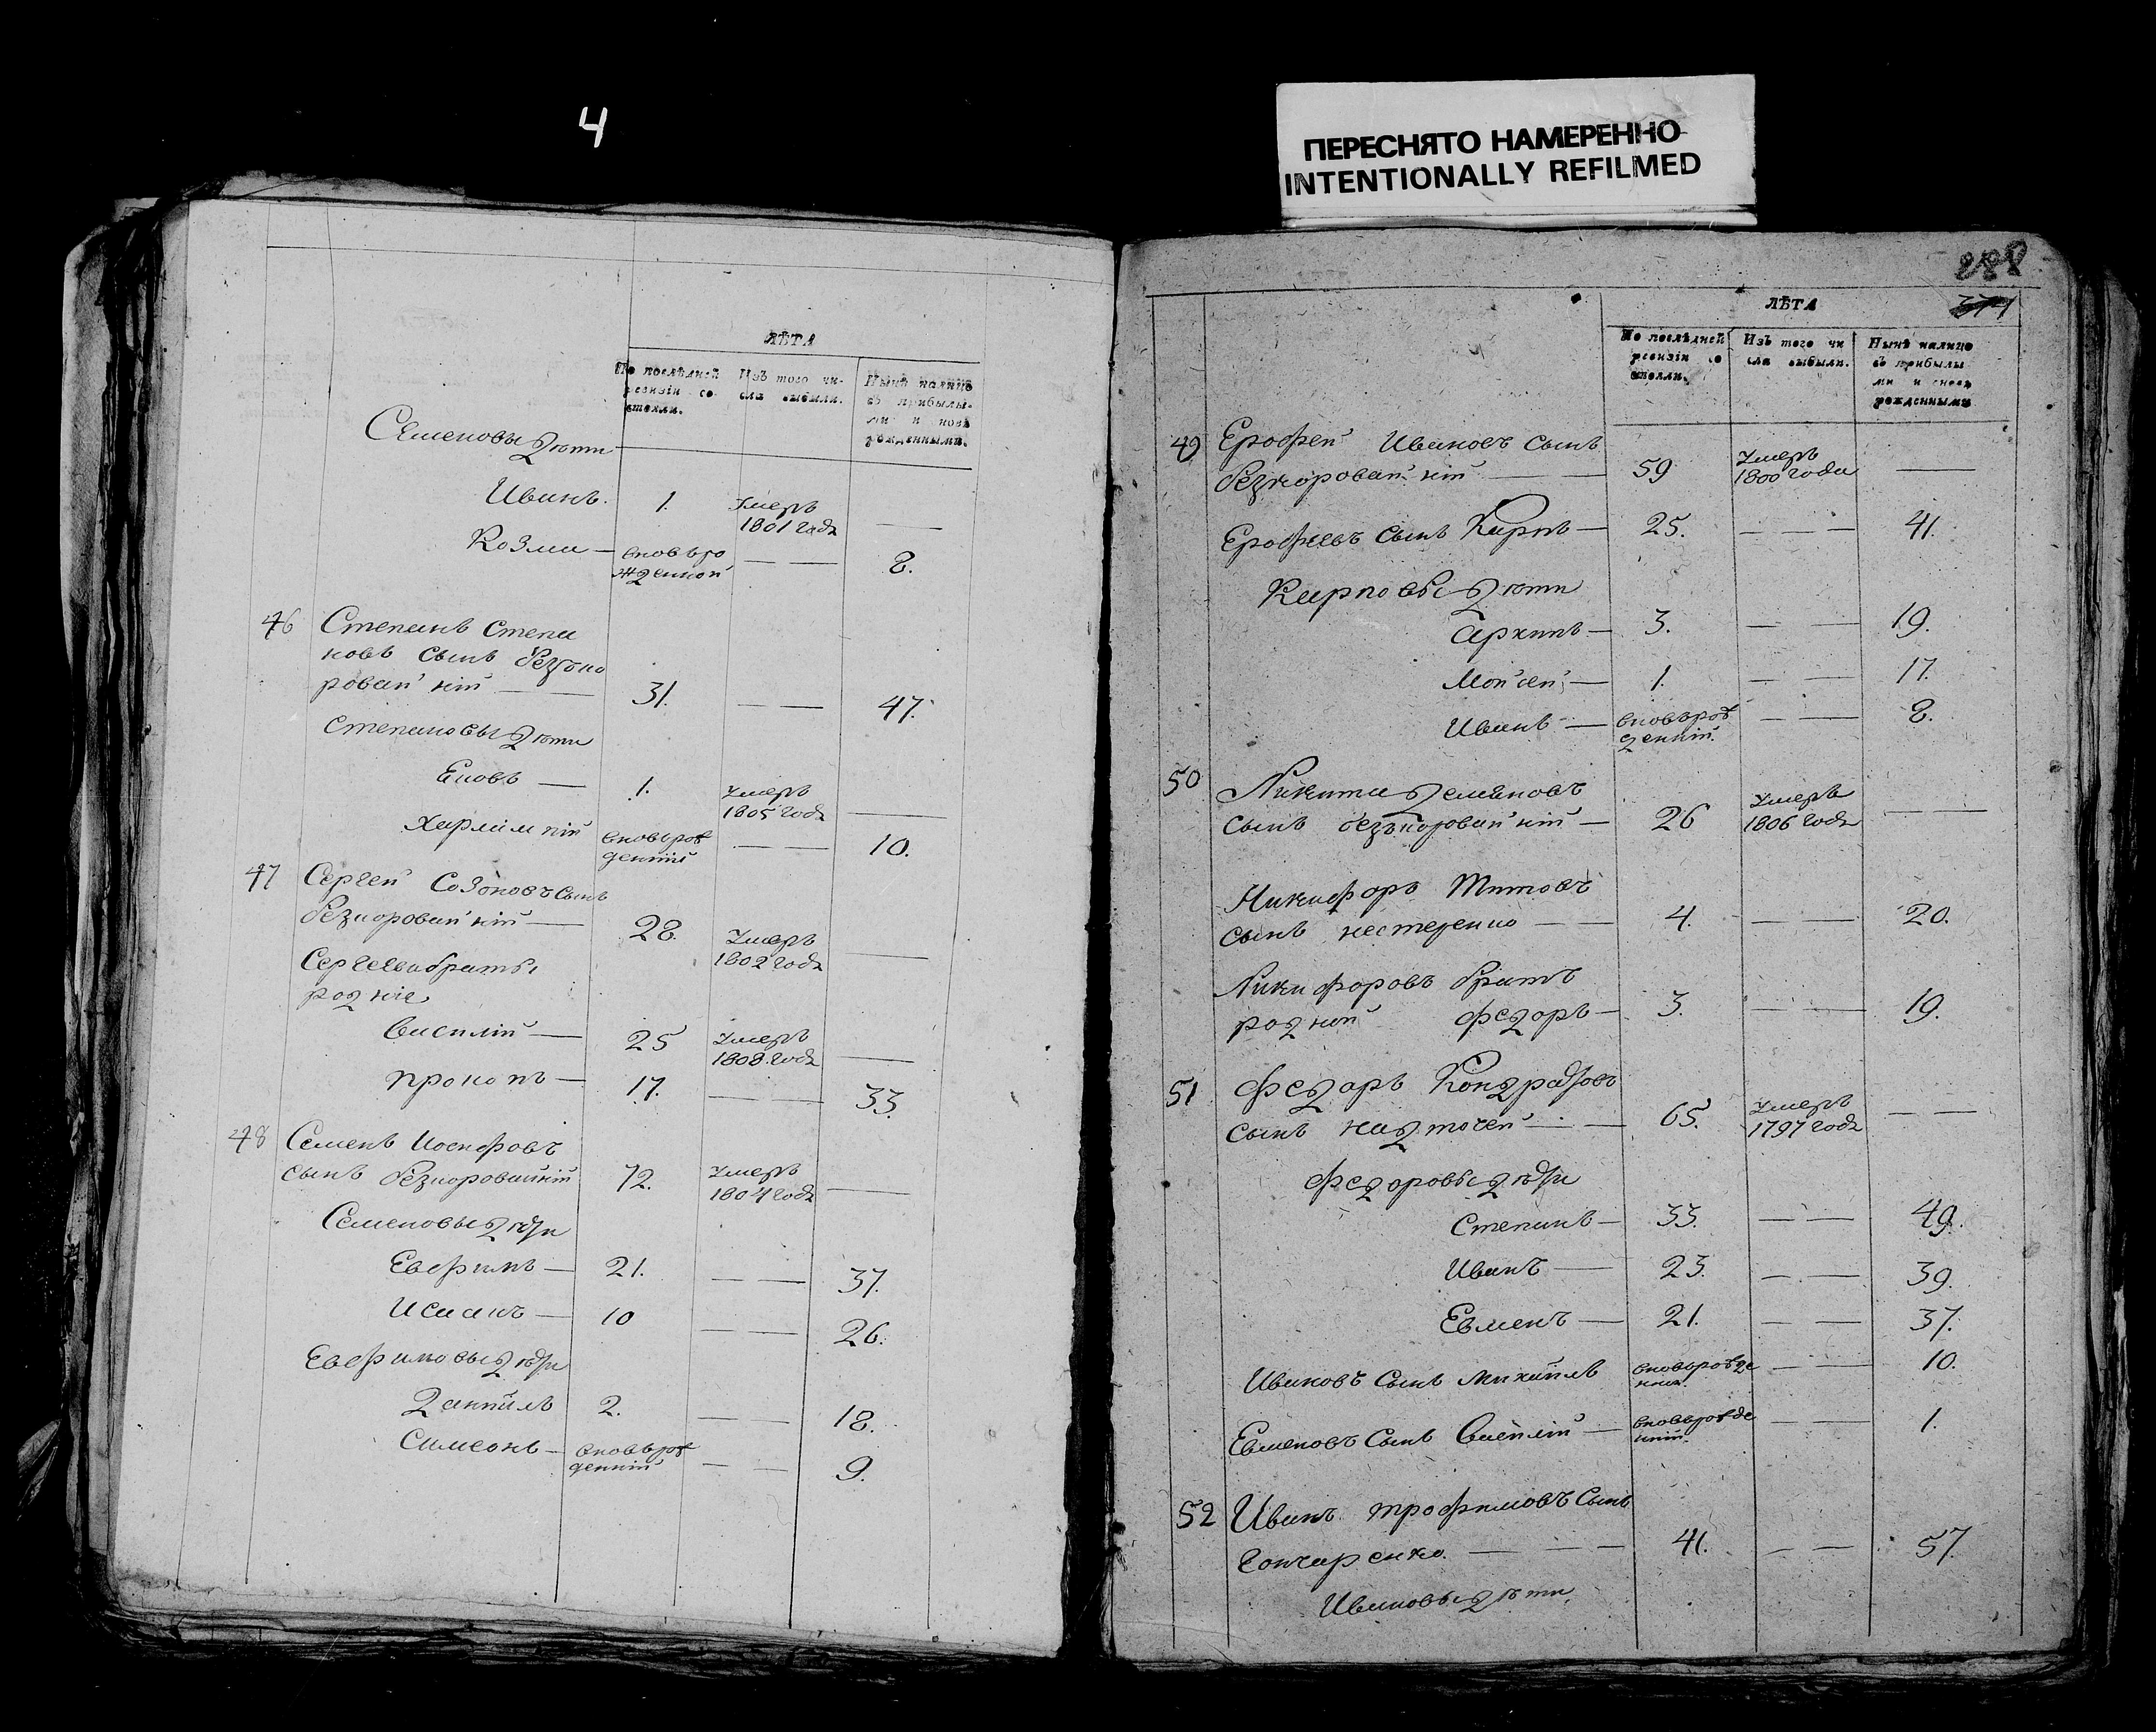 4
ПЕРЕСНЯТО НАМЕРЕННО
INTENTIONALLY REFILMED
ЛѢТА
По послѣдней ревизіи состояли.
Изъ того числа выбыли.
Нынѣ налицо съ прибылыми и новорожденными.
Семеновы дѣти
Иванъ. 1. Умеръ
1801 года —
Козма — вновьро
жденной — — 8.
46 Степанъ Степа
новъ сынъ безъко
ровайній — — 31. — — 47.
Степановы дѣти
Еновъ — 1. Умеръ
1805 года —
Харлампій вновьрож
денній — — 10.
47 Сергей Созоновъ сынъ
безкоровайній — 28. Умеръ
1802 года —
Сергеева браты
родніе
Василій — 25 Умеръ
1808. года —
Прокопъ — 17. — — 33.
48 Семенъ Иосифовъ
сынъ безкоровайній 72. Умеръ
1804 года —
Семеновы дѣти
Евфимъ — 21. — — 37.
Исаакъ — 10 — — 26.
Евфимовы дѣти
Данійлъ 2. — — 18.
Симеонъ — вновьрож
денній — — 9.
288
371
ЛѢТА
По послѣдней ревизіи состояли.
Изъ того числа выбыли.
Нынѣ налицо съ прибылыми и снова рожденными
49 Ерофей Ивановъ сынъ
безкоровайній — — 59 Умеръ
1800 года —
Ерофеевъ сынъ Карпъ — 25. — — 41.
Карповы дѣти
Архипъ — 3. — — 19.
Мойсей — 1. — — 17.
Иванъ — вновьрож
денній. — — 8.
50 Никита Демяновъ
сынъ безъкоровайній — 26 Умеръ
1806 года —
Никифоръ Титовъ
сынъ нестеренко — — 4. — — 20.
Никифоровъ братъ
родній федоръ — 3. — — 19.
51 федоръ Кондратовъ
сынъ надточей — — 65. Умеръ
1797 года — —
федоровы дѣти
Степанъ — 33. — — 49.
Иванъ — 23. — — 39.
Евменъ — 21. — — 37.
Ивановъ сынъ михайлъ вновьрожде
ній. — — 10.
Евменовъ сынъ Василій — вновьрожде
нній. — — 1.
52 Иванъ трофимовъ сынъ
Гончаренко. — — — 41. — — 57.
Ивановы дѣти